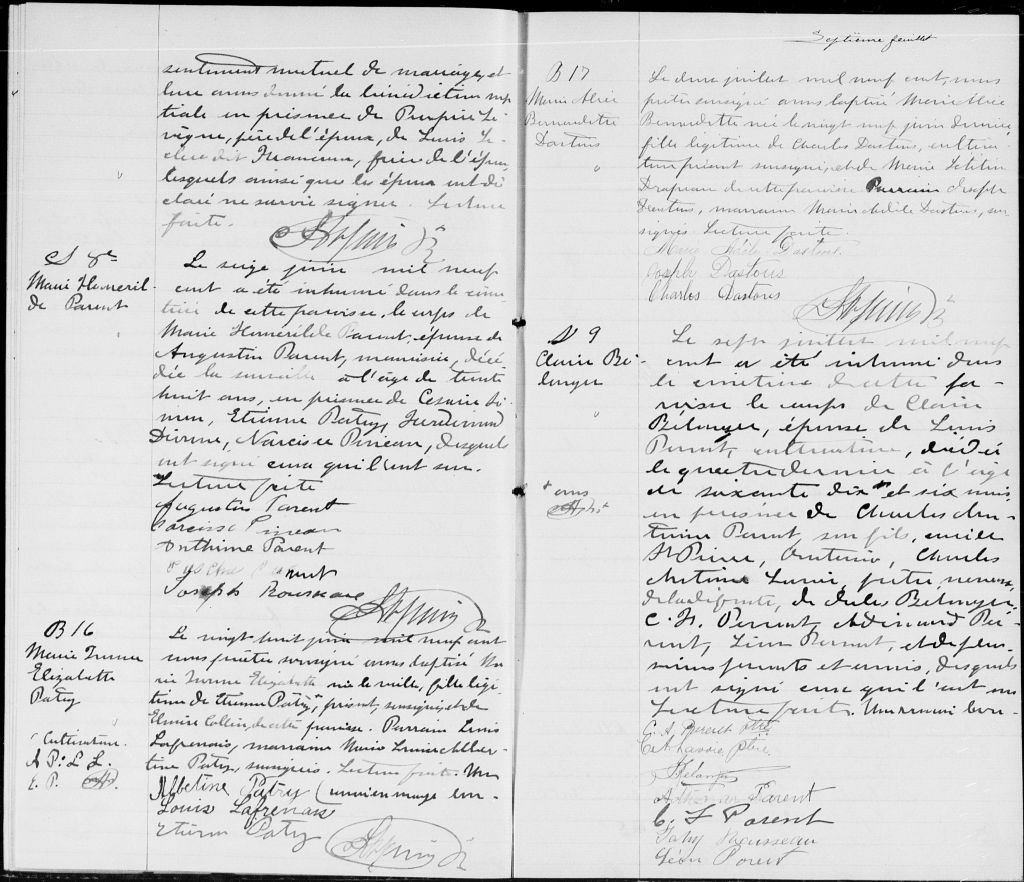 sentiment mutuel de mariage, et
leur avons donné la bénédiction nup
tiale en présence de
père de l'époux, de Louis Le
clerc dit Francoeur, frère de l'épouse,
lesquels ainsi que les époux ont dé
claré ne savoir signer. Lecture
faite.
S 8e
Marie Homeril-
de Parent
Le seize juin mil neuf
cent a été inhumé dans le cime
tière de cette paroisse, le corps de
Marie Homerilde Parent, épouse de
Augustin Parent, menuisier, décé
dée la surveille à l'âge de trente
huit ans, en présence de Cesaire Pi-
neau, Etienne Patry, Ferdinand
Narcisse Pineau, desquels
ont signé ceux qui l'ont su.
Lecture faite
Augustin Parent
Narcisse Pineau
Anthime Parent
Joseph Rousseau
B 16
Marie Jeanne
Elizabeth
Patry
Cultivateur.
A P. L L.
E. P.
Le vingt huit juin mil neuf cent
nous prêtre soussigné avons baptisé Ma
rie Jeanne Elizabeth née la veille, fille légi
time de Etienne Patry, présent, soussigné, et de
Elmire Collin, de cette paroisse. Parrain Louis
Lafrenais, marraine Marie Louise Alber
tine Patry, soussignés. Lecture faite. Un
Albertine Patry (un renvoi en marge bon
Louis Lafrenais
Etienne Patry
Septième feuillet
B 17
Marie Alice
Bernadette
Dastous
Le deux juillet mil neuf cent, nous
prêtre soussigné avons baptisé Marie Alice
Bernadette née le vingt neuf juin dernier,
fille légitime de Charles Dastous, cultiva-
teur présent soussigné, et de Marie
Drapeau de cette paroisse Parrain Joseph
Dastous, marraine Marie Adèle Dastous, sou
signés. Lecture faite.
Dastous
Joseph Dastous
Charles Dastous
S 9
Claire Bé-
langer
+ ans
Le sept juillet mil neuf
cent a été inhumé dans
le cimetière de cette pa-
roisse le corps de Claire
Bélanger, épouse de Louis
Parent, cultivateur, décédée
le quatre dernier à l'âge
de soixante dix + et six mois
en présence de Charles An-
toine Parent, son fils,
St Pierre, Charles
Antoine prêtre neveux
de la défunte, de Jules Bélanger,
C. F. Parent, Pa-
rent, Léon Parent, et de plu-
sieurs parents et amis, desquels
ont signé ceux qui l'ont su
Lecture faite. Un renvoi bon
C. A. Parent ptre
Bélanger
Parent
C. F Parent
Rousseau
Léon Parent